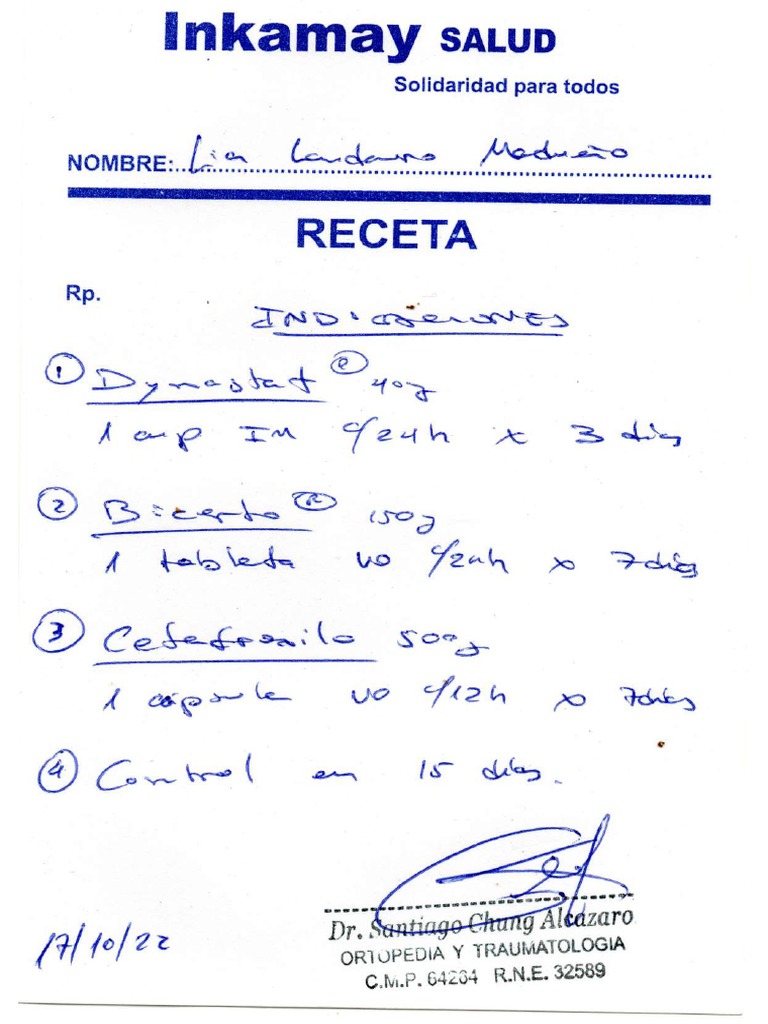 Inkamay SALUD
Solidaridad para todos
NOMBRE: Lia Madueño
RECETA
Rp.
INDICACIONES
① Dynastat ® 40g
1 amp IM c/24h x 3 días
② Bicerto ® 150g
1 tableta vo c/24h x 7 días
③ 500g
1 cápsula vo c/12h x 7 días
④ Control en 15 días.
17/10/22
Dr. Santiago Chung Alcázaro
ORTOPEDIA Y TRAUMATOLOGIA
C.M.P. 64264 R.N.E. 32589